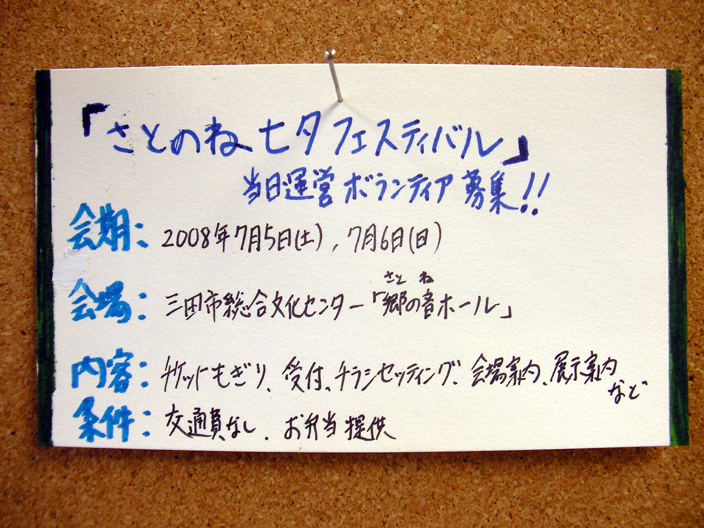 「さとのね七夕フェスティバル」
当日運営ボランティア募集!!
会期：2008年7月5日(土)，7月6日(日)
さと ね
会場：三田市総合文化センター「郷の音ホール」
内容：チケットもぎり、受付、チラシセッティング、会場案内、展示案内
など
条件：交通費なし、お弁当提供